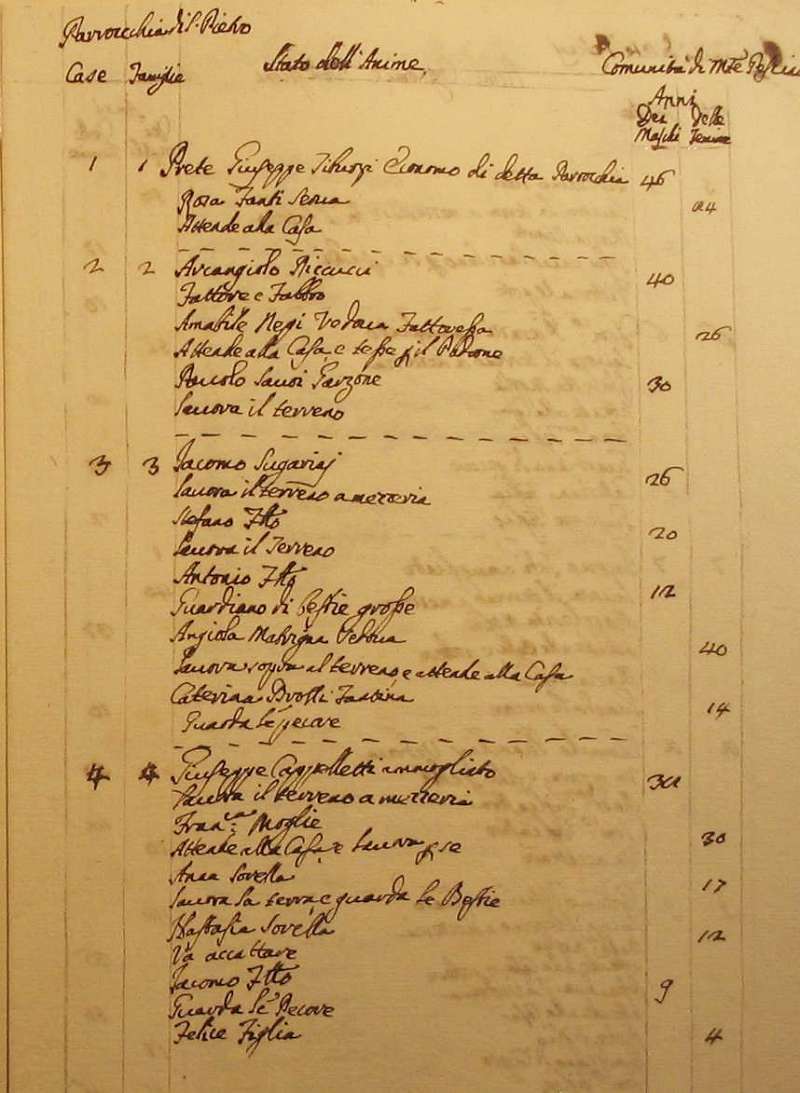 Parrocchia di S. Pietro
Case Famiglie Stato dell'Anime Comunità di Mte
Anni
Dei Delle
Maschi Femine
1 1 Prete Giuseppe Economo di detta Parrocchia 46
Rosa Fanti Serva 24
Attende alla Casa
2 2 Arcangiolo Riccucci 40
Fattore e Fabbro
Amabile Negi Vedova Fattoressa 26
Attende alla Casa e tesse p il Padrone
Garzone 30
Lavora il terreno
3 3 Iacomo 26
Lavora il terreno a mezzeria
Stefano Ftto 20
Lavora il Terreno
Antonio Ftto 12
Guardiano di bestie grosse
Angiola Matrigna Vedova 40
Lavora sopra al terreno, e attende alla Casa
Caterina Fantina 14
Guarda le pecore
4 4 Giuseppe Cappelletti ammogliato
Lavora il terreno a mezzeria
Franca Moglie 30
Attende alla Casa e Lavora p se
Anna Sorella 17
Lavora la terra e guarda le Bestie
Nastasia Sorella 12
Va accattare
Iacomo Ftto 9
Guarda le Pecore
Felice Figlia 4